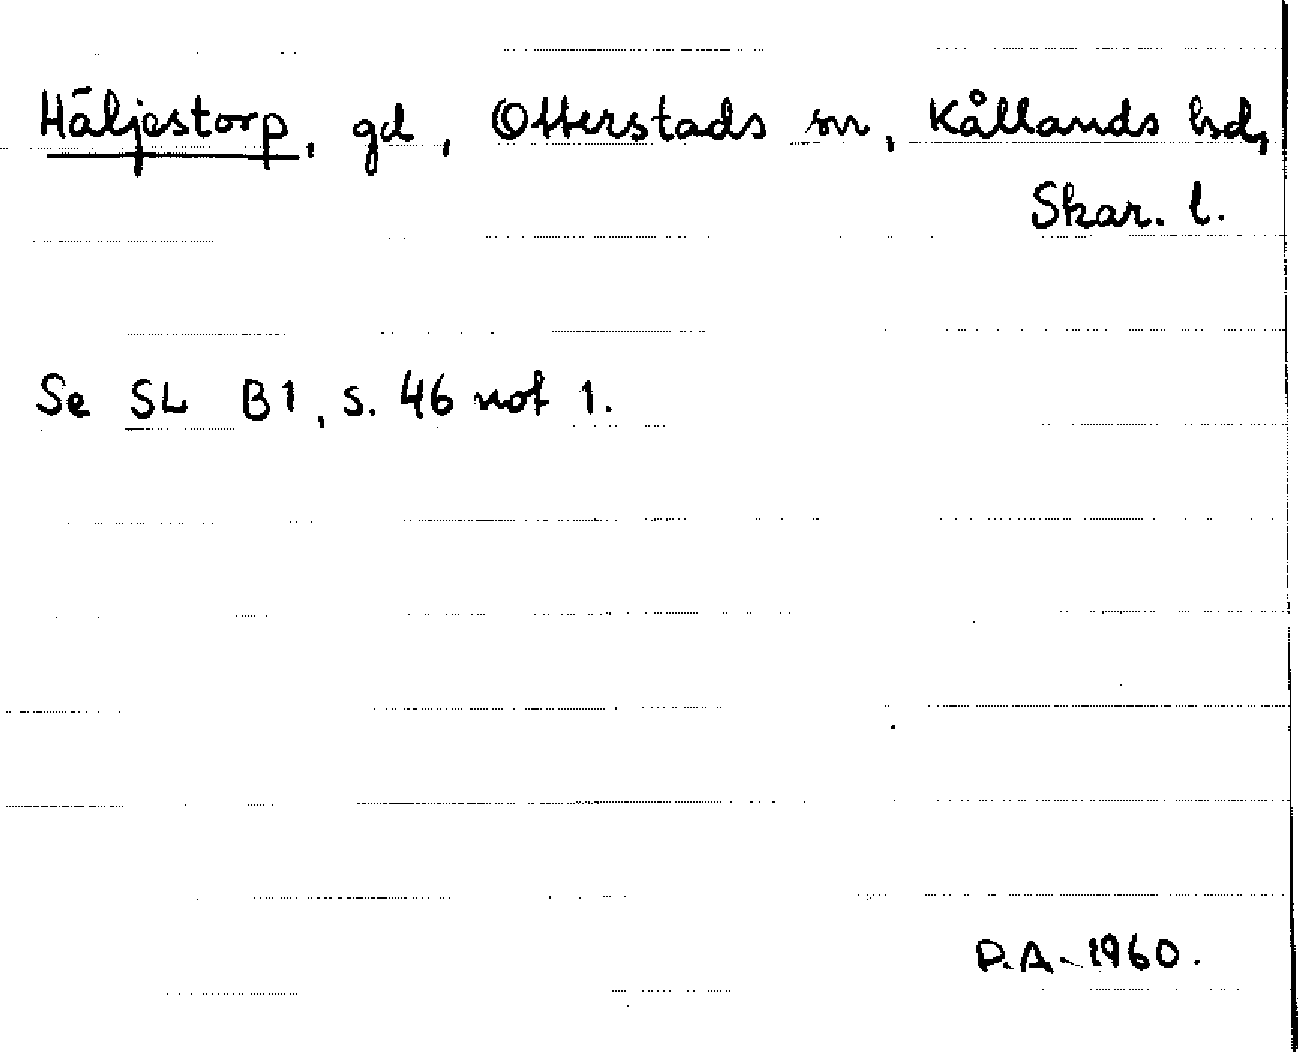 Häljestorp, gd, Otterstads sn, Kållands hd,
Skar. l.
Se SL B1, s. 46 not 1.
P.A. 1960.